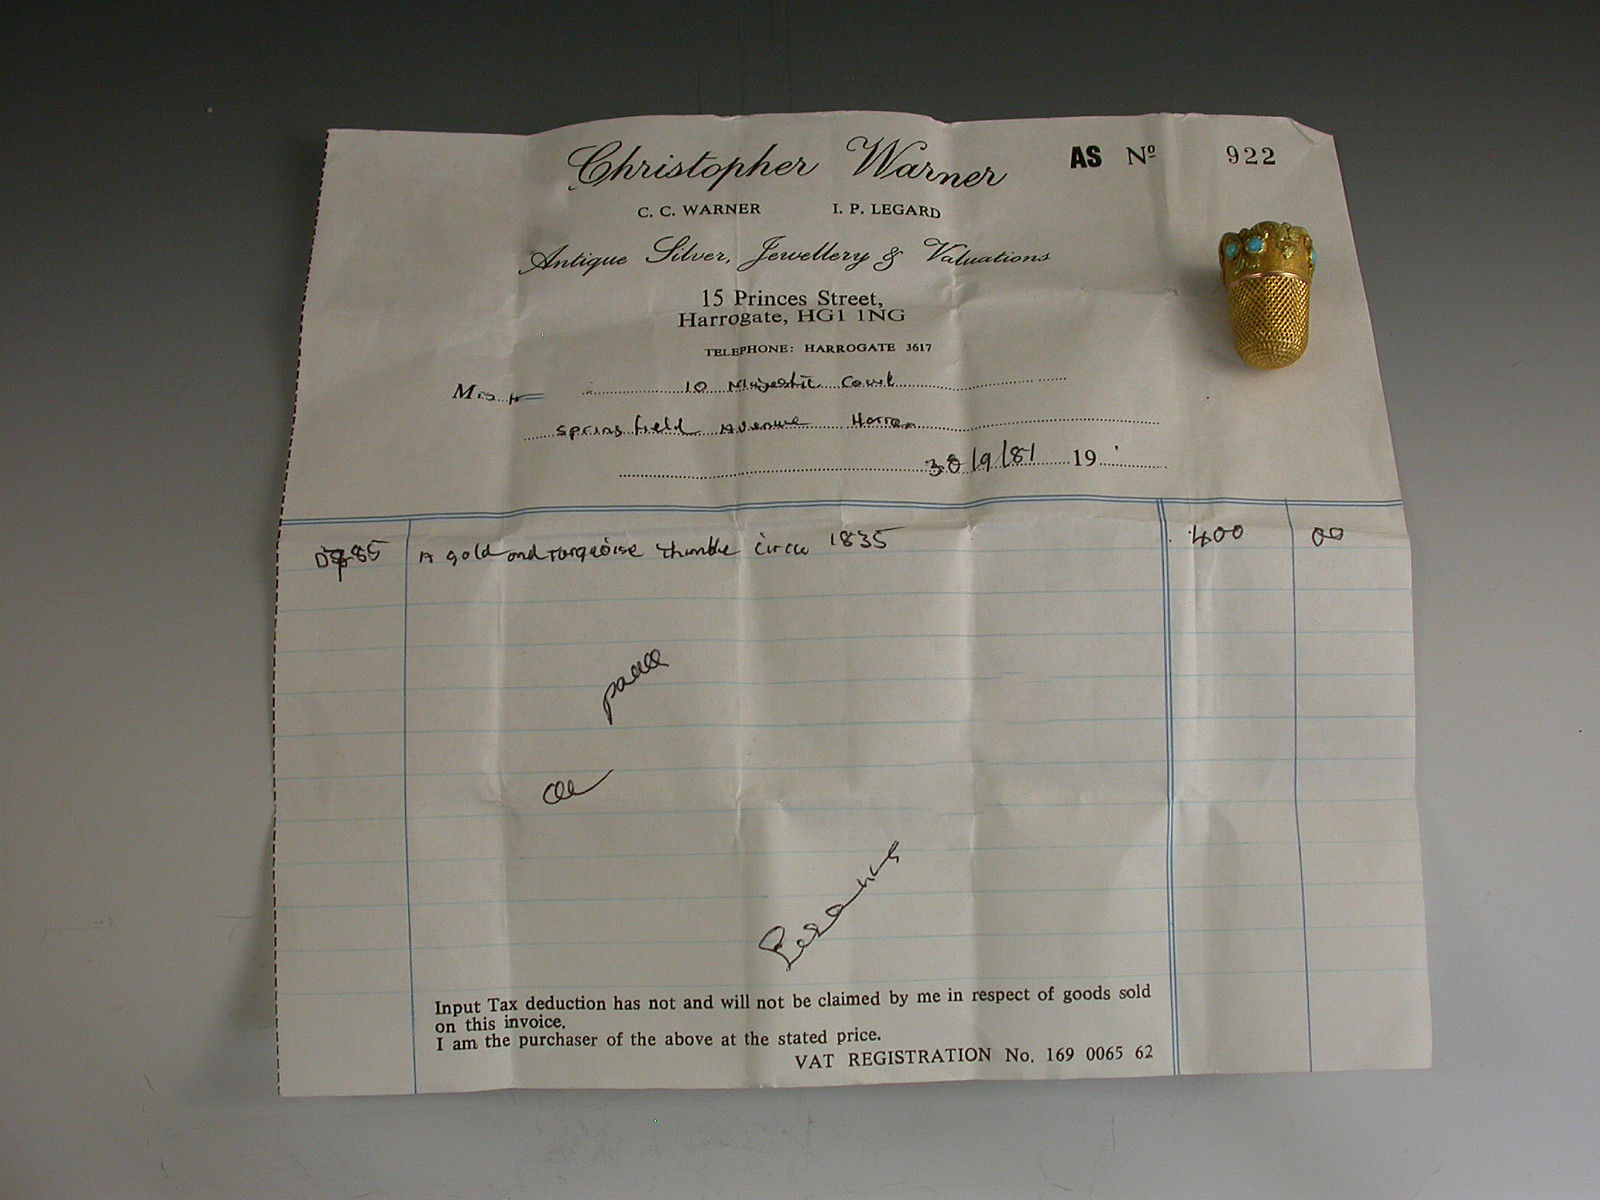 Christopher Warner AS Nº 922
C. C. WARNER I. P. LEGARD
Antique Silver, Jewellery & Valuations
15 Princes Street,
Harrogate, HG1 1NG
TELEPHONE: HARROGATE 3617
Mrs 10 Majestic Court
Springfield Avenue
/9/81 19
A gold and turquoise thimble circa 1835 400 00
Input Tax deduction has not and will not be claimed by me in respect of goods sold
on this invoice.
I am the purchaser of the above at the stated price.
VAT REGISTRATION No. 169 0065 62